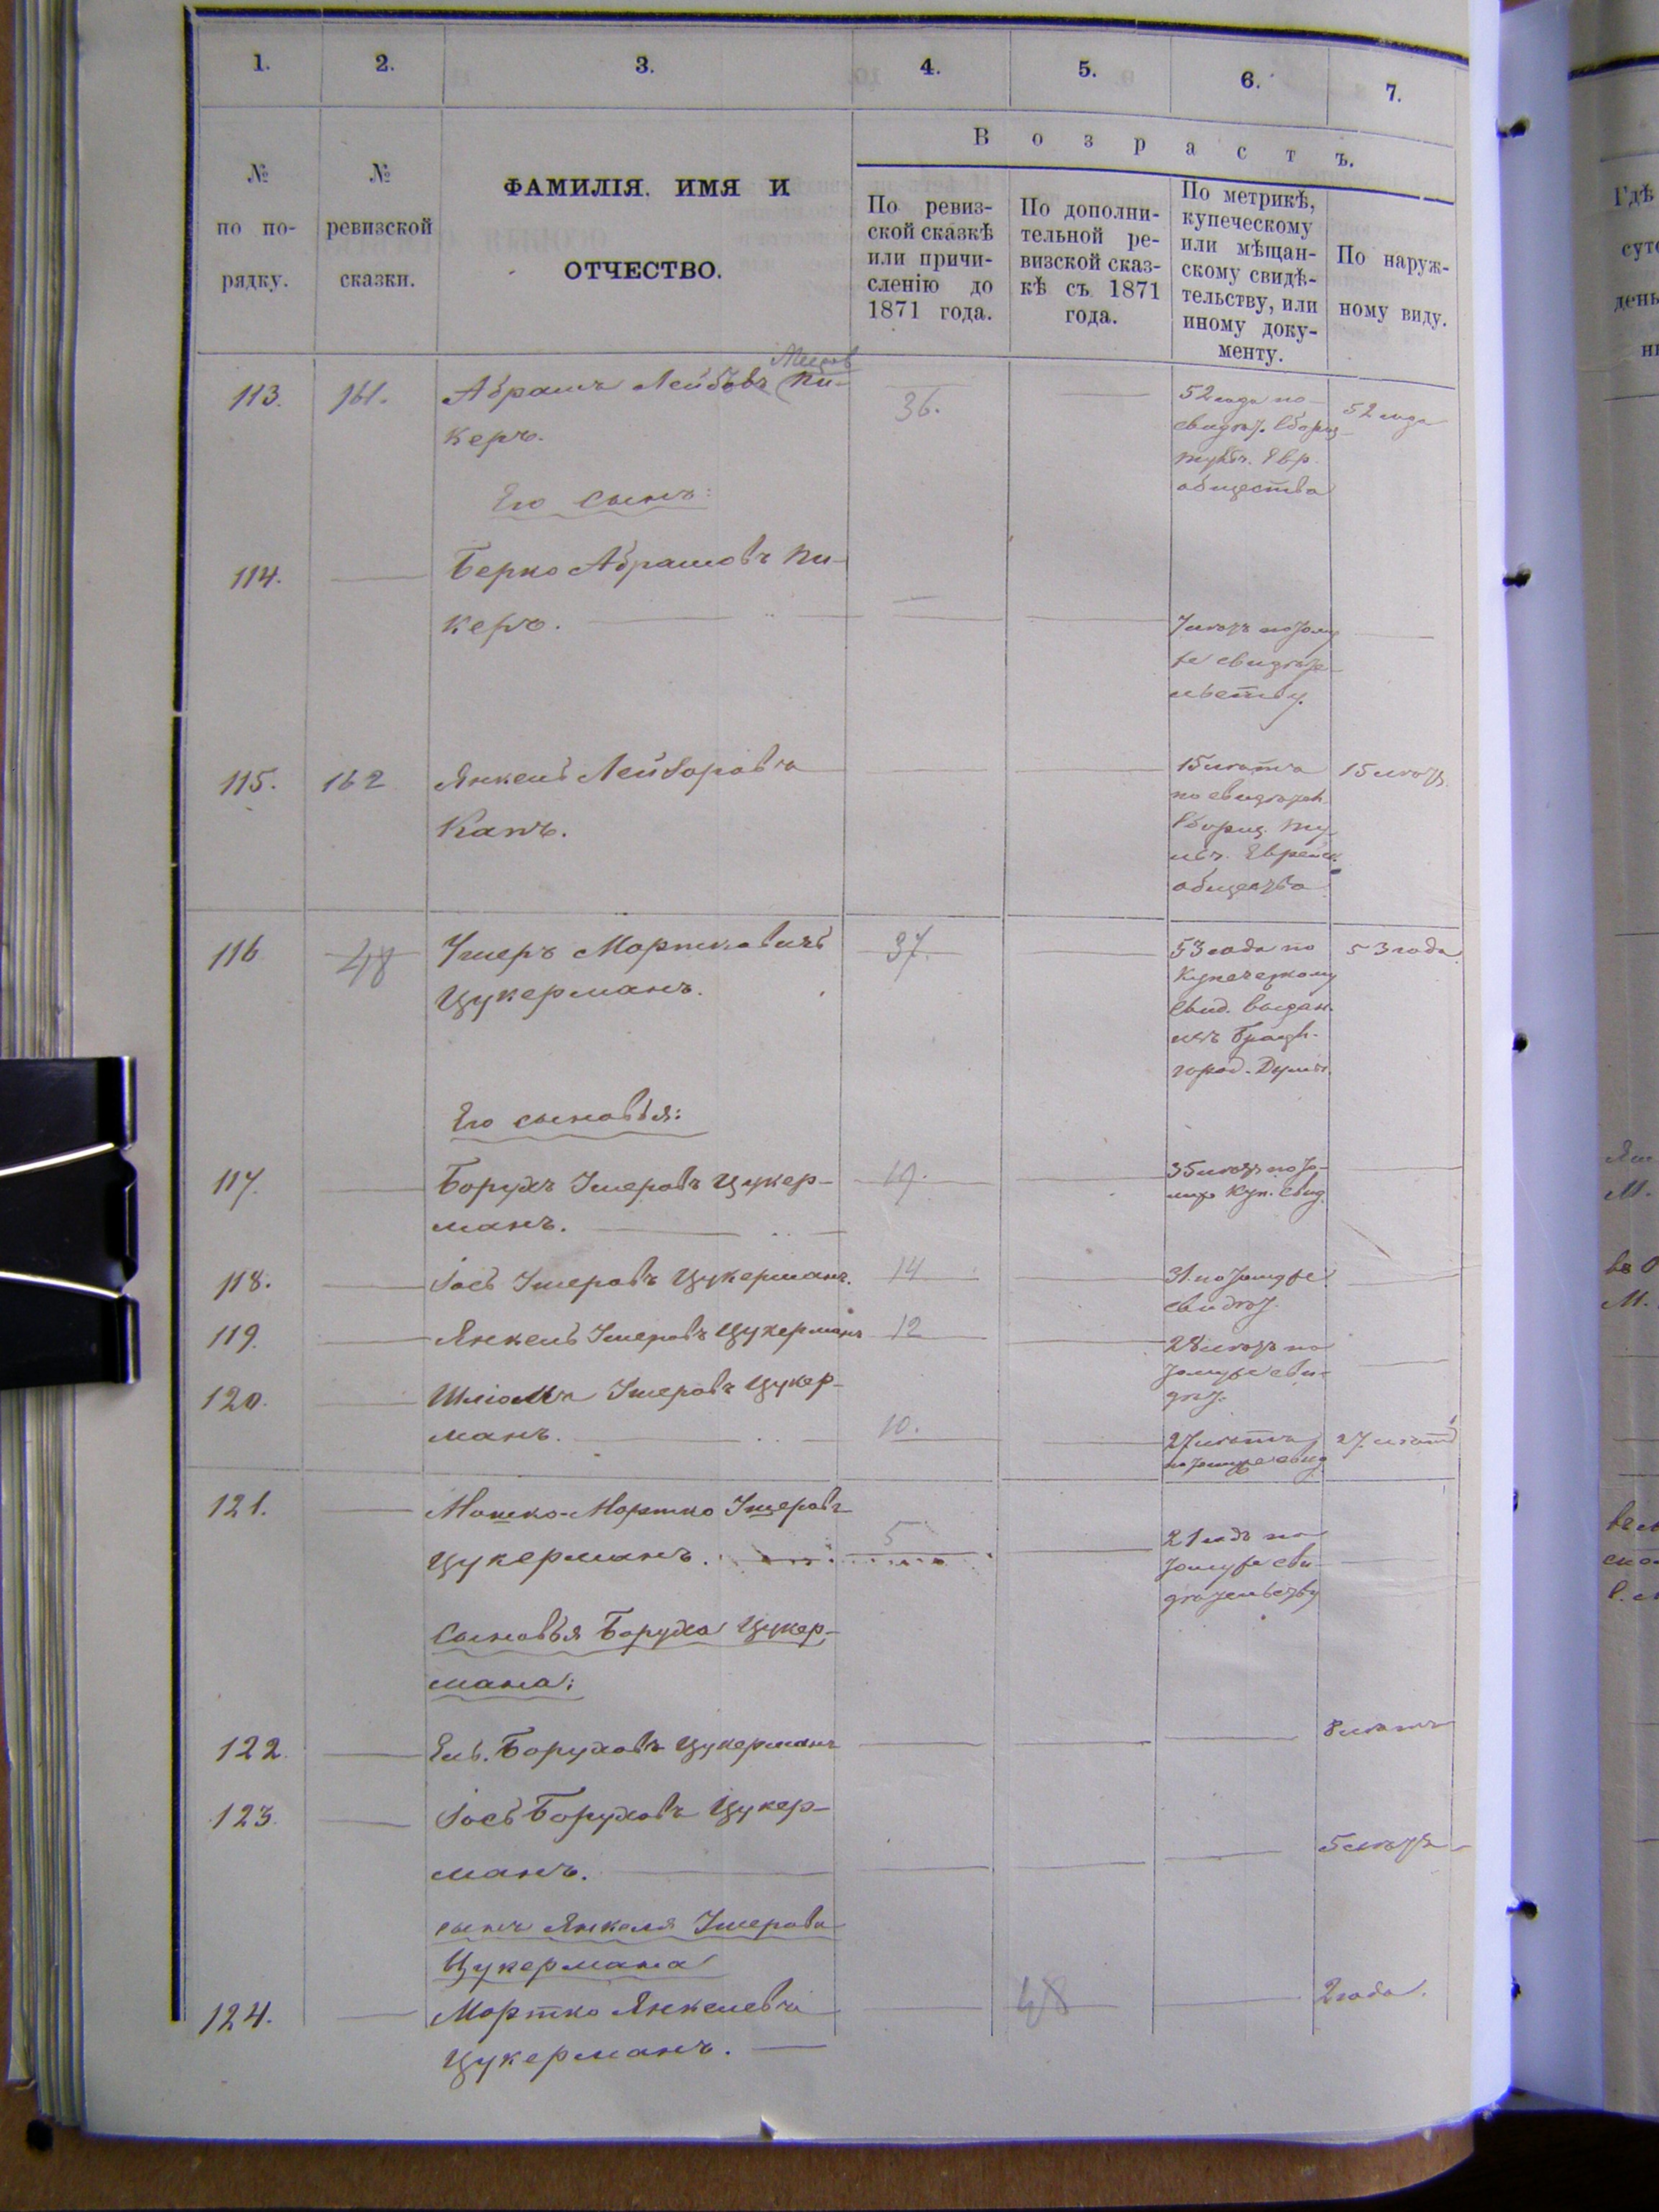 1. 2. 3. 4. 5. 6. 7.
№ по по-рядку.
№ ревизской сказки.
ФАМИЛІЯ, ИМЯ И
ОТЧЕСТВО.
В о з р а с т ъ.
По ревиз-
ской сказкѣ
или причи-
сленію до
1871 года.
По дополни-
тельной ре-
визской сказ-
кѣ съ 1871
года.
По метрикѣ,
купеческому
или мѣщан-
скому свидѣ-
тельству, или
иному доку-
менту.
По наруж-
ному виду.
113. 161. Абрамъ Лейбовъ Пи-
керъ.
36.
52 года по
свидѣт.
Евр.
общества
52 года
Его сынъ:
114. Берко Абрамовъ Пи-
керъ.
7 лѣтъ по тому
же свидѣте-
льству.
115. 162 Янкель Лейзоровъ
Канъ.
15 лѣтъ
по свидѣтел.
Еврейск.
общества
15 лѣтъ
116 48 Ушеръ Мортковичъ
Цукерманъ.
37.
53 года по
купеческому
свид. выдан.
изъ
город. Думы.
53 года.
Его сыновья:
117. Борухъ Ушеровъ Цукер-
манъ.
19.
35 лѣтъ по то-
муже куп. свид.
118. Іось Ушеровъ Цукерманъ. 14
31. по томуже
свидѣт.
119. Янкель Ушеровъ Цукерманъ 12
28 лѣтъ по
томуже сви-
дѣт.
120. Шліома Ушеровъ Цукер-
манъ. 10.
27 лѣтъ
по томуже свид.
27 лѣтъ
121. Мошко-Мортко Ушеровъ
Цукерманъ. 5
21 годъ по
томуже сви-
дѣтельству
Сыновья Боруха Цукер-
мана:
122. Ель Боруховъ Цукерманъ 8 лѣтъ
123. Іось Боруховъ Цукер-
манъ. 5 лѣтъ
сынъ Янкеля Ушерова
Цукермана
124. Мортко Янкелевъ
Цукерманъ. 48 2 года.
Гдѣ